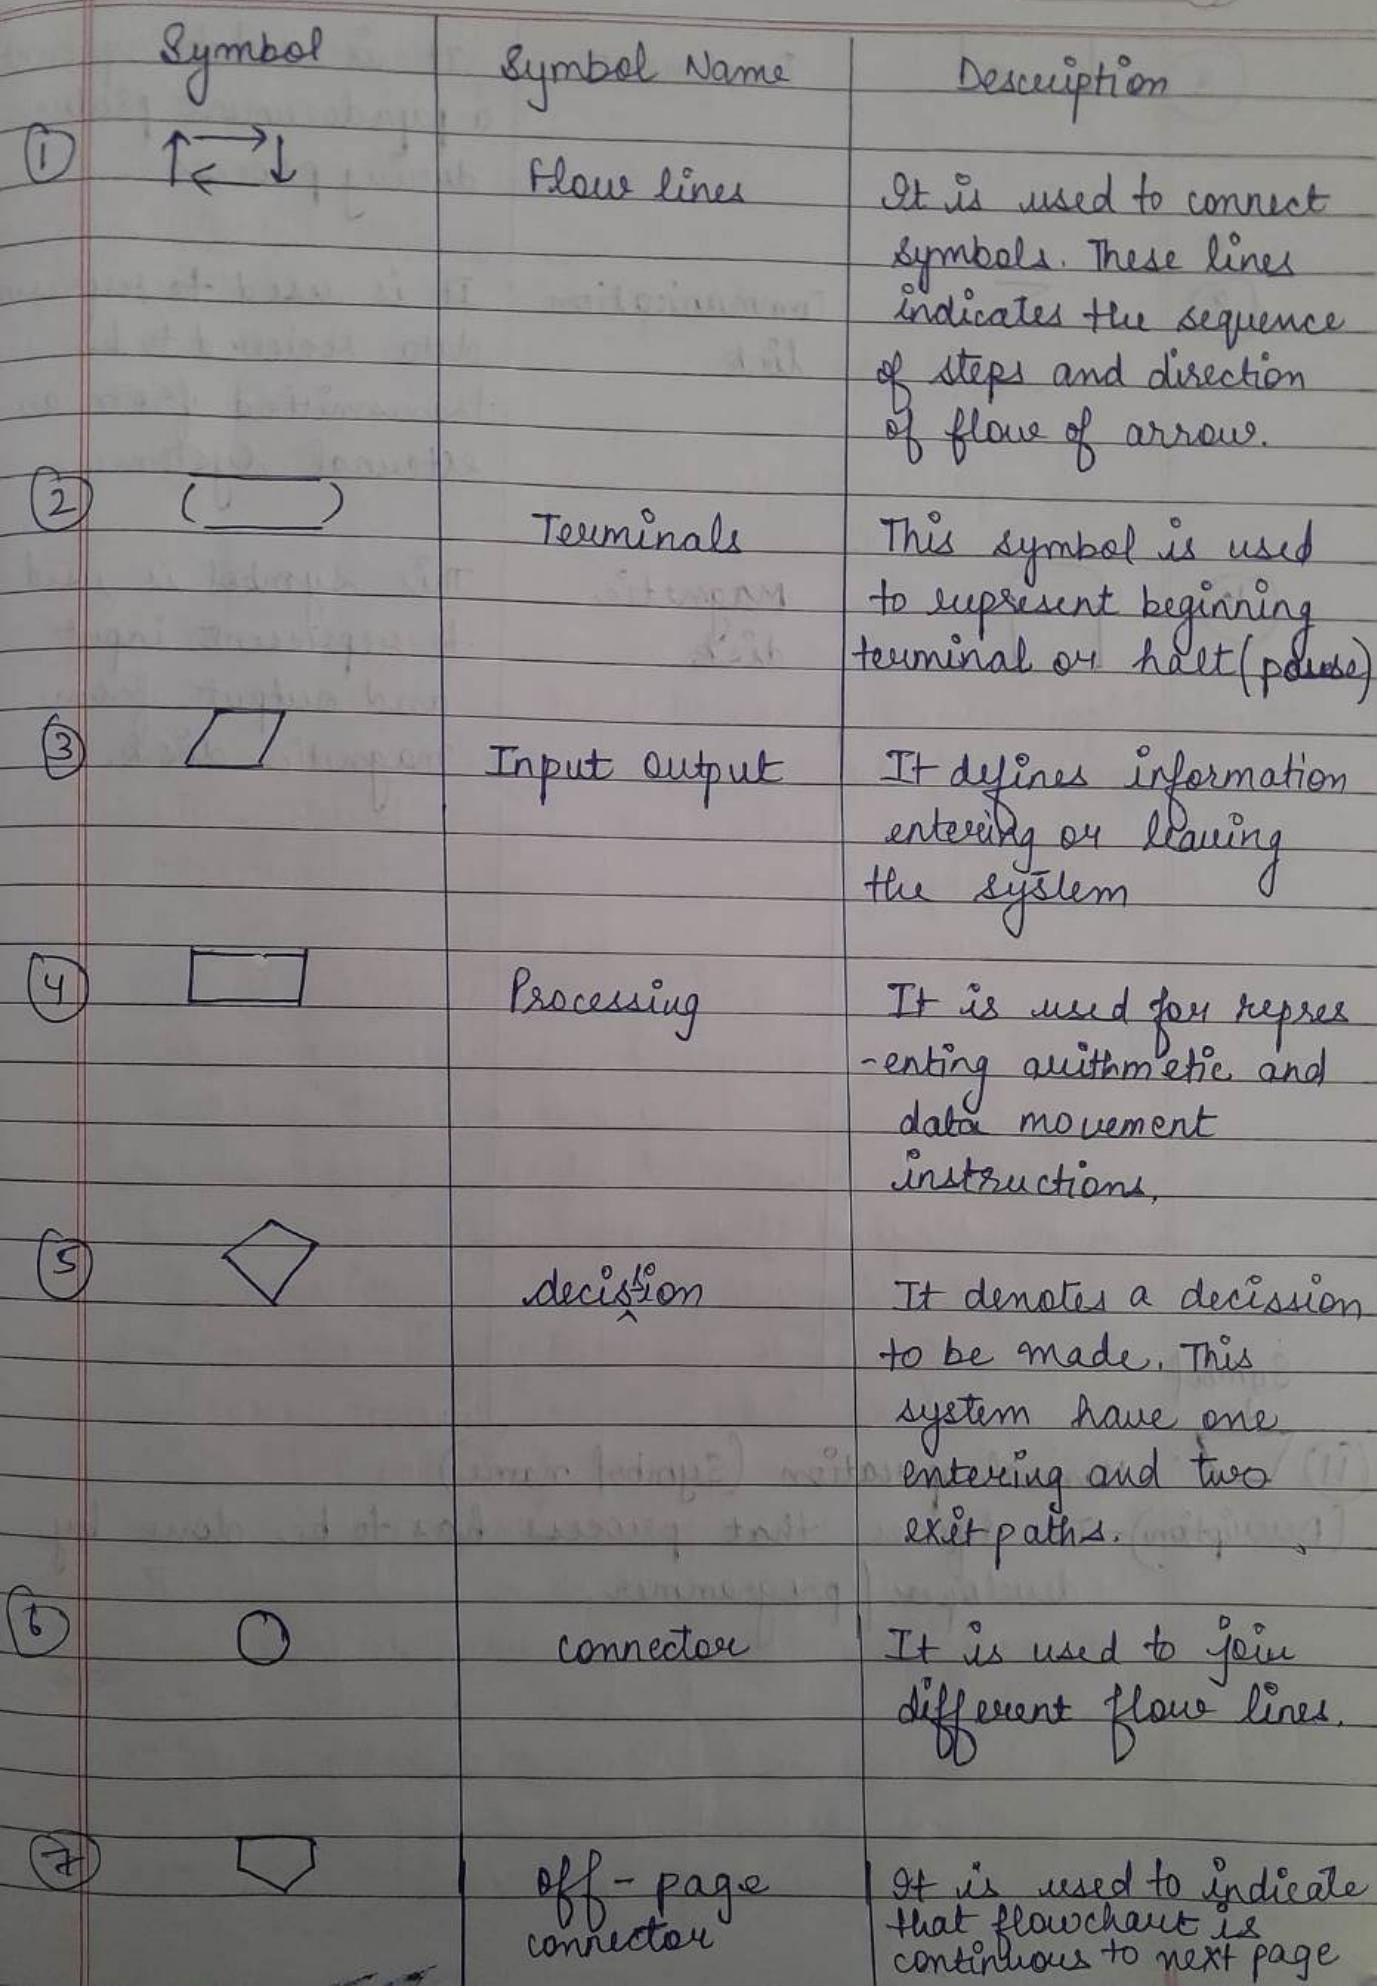 Symbol Symbol Name Description
1 Flow lines It is used to connect
symbols. These lines
indicates the sequence
of steps and direction
of flow of arrow.
2 Terminals This symbol is used
to represent beginning
terminal or halt (pause)
3 Input output It defines information
entering or leaving
the system
4 Processing It is used for repres
-enting arithmetic and
data movement
instructions,
5 decission It denotes a decission
to be made. This
system have one
entering and two
exit paths.
6 connector It is used to join
different flow lines.
7 off-page It is used to indicate
connector that flowchart is
continuous to next page